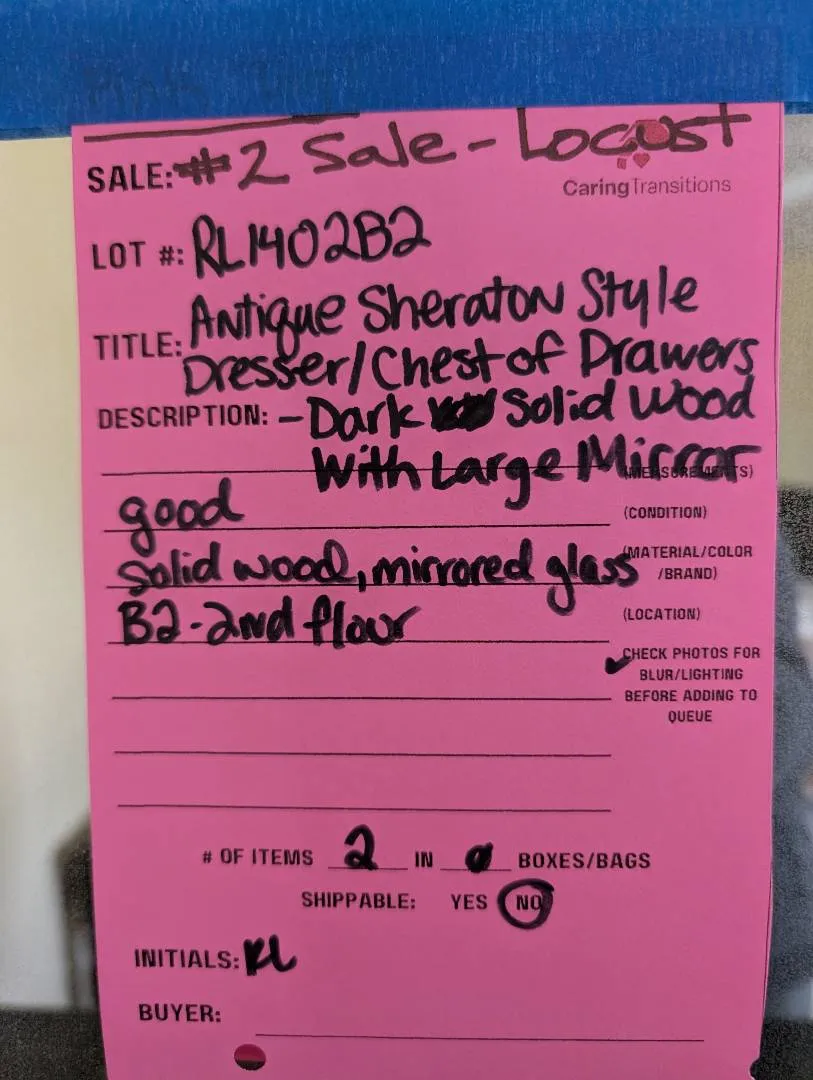 SALE: #2 Sale - Locust
CaringTransitions
LOT #: RL1402B2
TITLE: Antique Sheraton Style
Dresser/Chest of Drawers
DESCRIPTION: - Dark Solid Wood
With Large Mirror
(MEASUREMENTS)
good (CONDITION)
Solid wood, mirrored glass (MATERIAL/COLOR
/BRAND)
B2-2nd flour (LOCATION)
✓CHECK PHOTOS FOR
BLUR/LIGHTING
BEFORE ADDING TO
QUEUE
# OF ITEMS 2 IN 0 BOXES/BAGS
SHIPPABLE: YES NO
INITIALS: RL
BUYER: